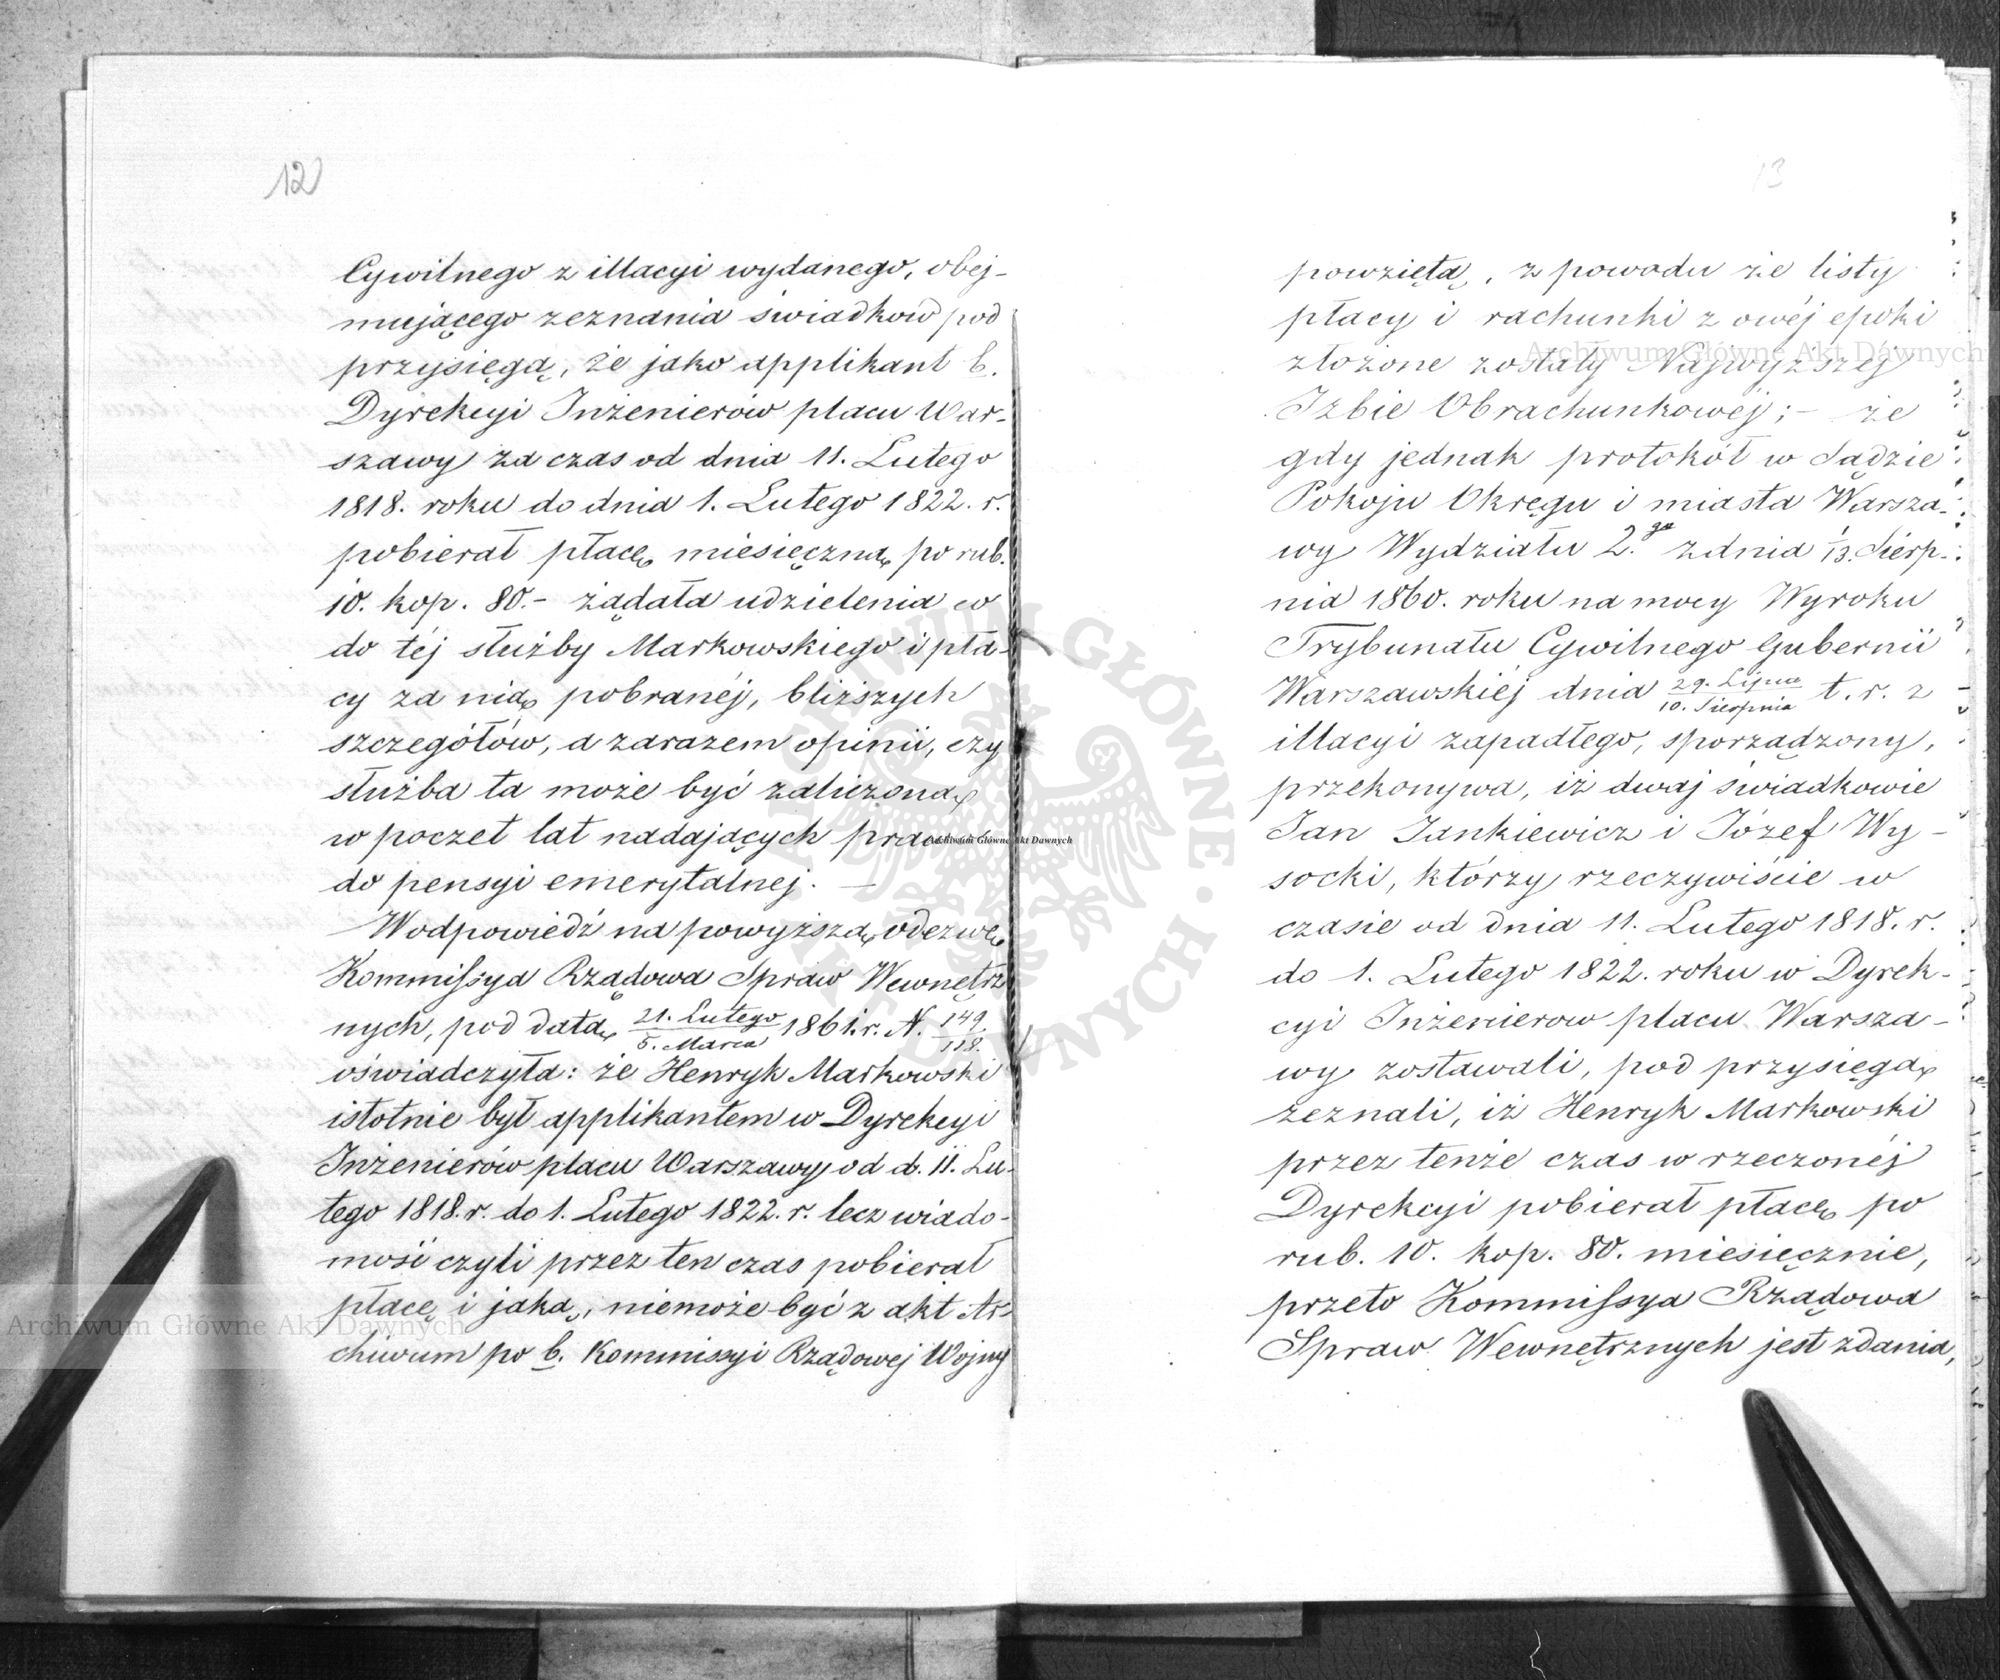 12
Cywilnego z illacyi wydanego, obej-
mującego zeznania świadków pod
przysięgą, że jako applikant b.
Dyrekcyi Inżenierów placu War-
szawy za czas od dnia 11. Lutego
1818. roku do dnia 1. Lutego 1822. r.
pobierał płacę miesięczną po rub.
10. kop. 80.- żądała udzielenia co
do téj służby Markowskiego i pła-
cy za nią pobranéj, bliższych
szczegółów, a zarazem opinii, czy
służba ta może być zaliczoną
w poczet lat nadających prawo
do pensyi emerytalnej. —
W odpowiedź na powyższą odezwę
Kommissya Rządowa Spraw Wewnętrz
nych, pod datą 21. Lutego / 5. Marca 1861. r. N. 149 / 118.
oświadczyła: że Henryk Markowski
istotnie był applikantem w Dyrekcyi
Inżenierów placu Warszawy od d. 11. Lu-
tego 1818. r. do 1. Lutego 1822. r. lecz wiado-
mość czyli przez ten czas pobierał
płacę i jaką, niemoże być z akt Ar-
chiwum po b. Kommissyi Rządowej Wojny
13
powziętą, z powodu że listy
płacy i rachunki z owéj epoki
złożone zostały Najwyższej
Izbie Obrachunkowéj; - że
gdy jednak protokół w Sądzie
Pokoju Okręgu i miasta Warsza-
wy Wydziału 2.go z dnia 1/13. Sierp-
nia 1860. roku na mocy Wyroku
Trybunału Cywilnego Gubernii
Warszawskiéj dnia 29. Lipca / 10. Sierpnia t. r. z
illacyi zapadłego, sporządzony,
przekonywa, iż dwaj świadkowie
Jan Jankiewicz i Józef Wy-
socki, którzy rzeczywiście w
czasie od dnia 11. Lutego 1818. r.
do 1. Lutego 1822. roku w Dyrek-
cyi Inżenierow placu Warsza-
wy zostawali, pod przysięgą
zeznali, iż Henryk Markowski
przez tenże czas w rzeczonéj
Dyrekcyi pobierał płacę po
rub. 10. kop. 80. miesięcznie,
przeto Kommissya Rządowa
Spraw Wewnętrznych jest zdania,
Archiwum Główne Akt Dawnych
Archiwum Główne Akt Dawnych
Archiwum Główne Akt Dawnych
ARCHIWUM GŁÓWNE · AKT DAWNYCH ·